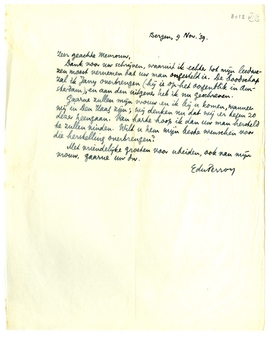 Bergen, 9 Nov. 39.
Zeer geachte Mevrouw,
Dank voor uw schrijven, waaruit ik echter tot mijn leedwe-
zen moest vernemen dat uw man ongesteld is. De boodschap
zal ik Jany overbrengen (hij is op het oogenblik in Am-
sterdam), en aan den uitgever heb ik nu geschreven.
Gaarne zullen mijn vrouw en ik bij u komen, wanneer
wij in Den Haag zijn; wij denken nu dat wij er tegen 20
dezer heengaan. Van harte hoop ik dan uw man hersteld
te zullen vinden. Wilt u hem mijn beste wenschen voor
die herstelling overbrengen?
Met vriendelijke groeten voor u beiden, ook van mijn
vrouw, gaarne uw dw.
EduPerron